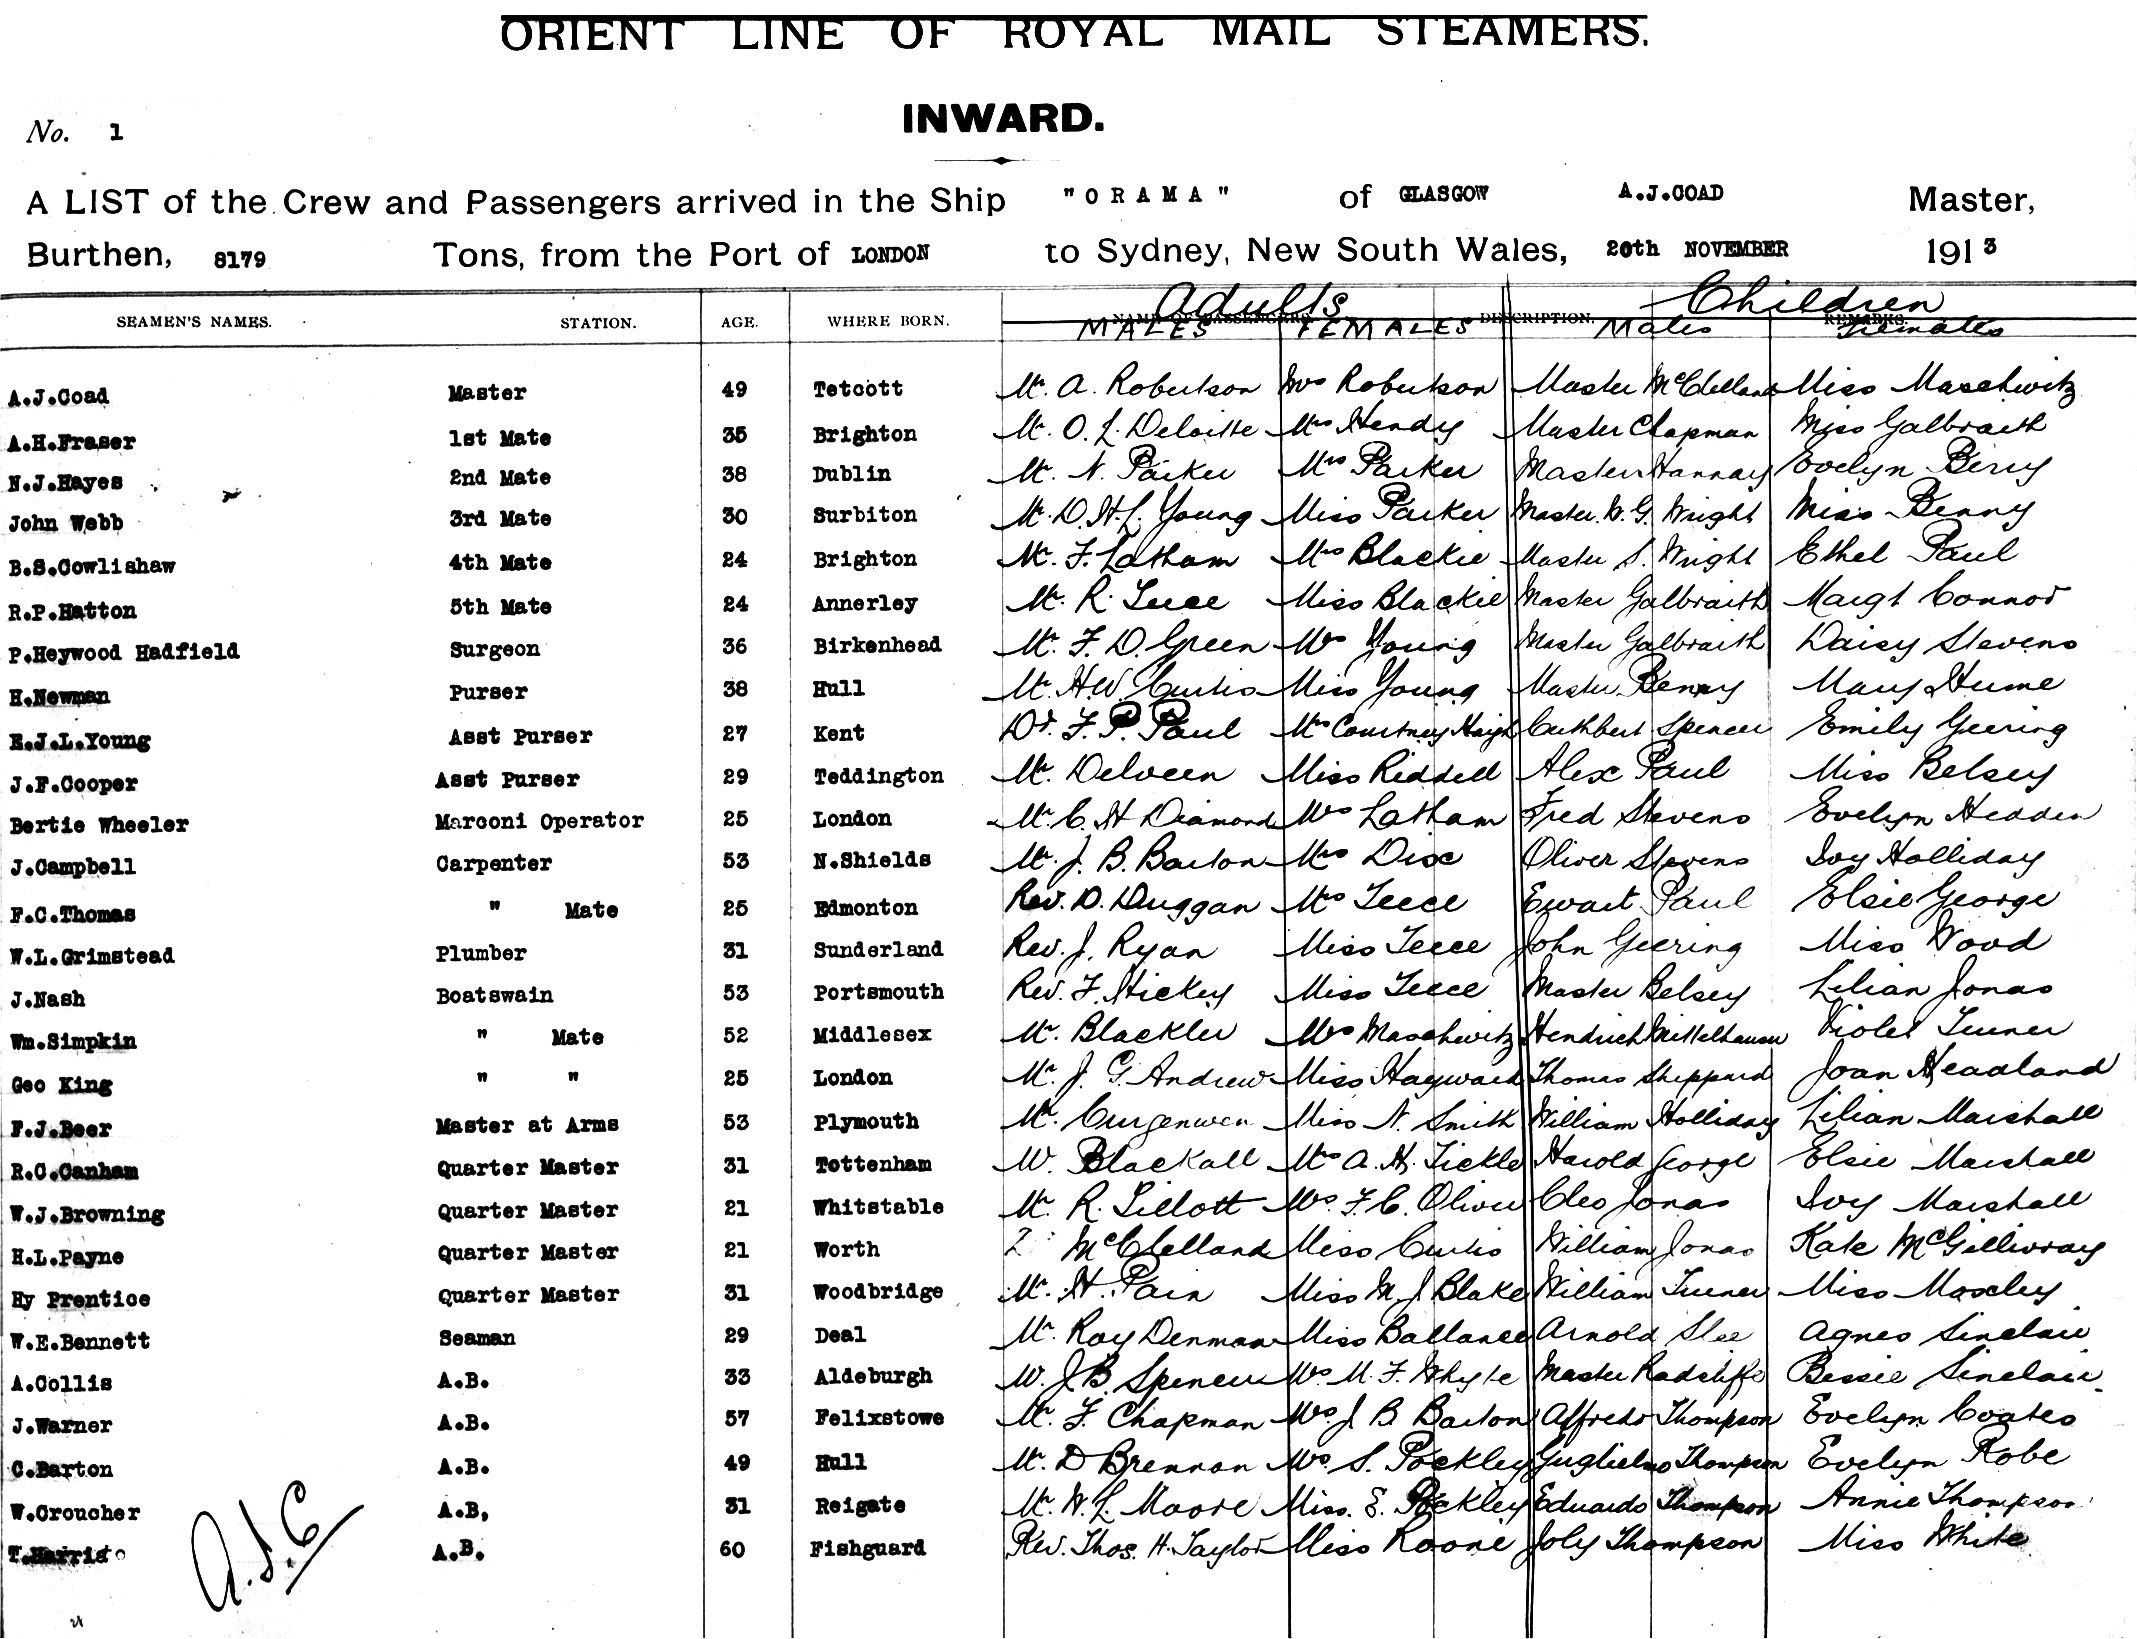 ORIENT LINE OF ROYAL MAIL STEAMERS.
INWARD.
No. 1
A LIST of the Crew and Passengers arrived in the Ship "ORAMA" of GLASGOW A.J.COAD Master,
Burthen, 8179 Tons, from the Port of LONDON to Sydney, New South Wales, 20th NOVEMBER 1913
Adults Children
SEAMEN'S NAMES. STATION. AGE. WHERE BORN. MALES FEMALES DESCRIPTION. Males REMARKS. Females
A.J.Coad Master 49 Tetcott Mr. A. Robertson Mrs Robertson Master McClelland Miss Maschwitz
A.H.Fraser 1st Mate 35 Brighton Mr. O. L. Deloitte Mrs Hendy Master Chapman Miss Galbraith
N.J.Hayes 2nd Mate 38 Dublin Mr. N. Parker Mrs Parker Master Hannay Evelyn Berry
John Webb 3rd Mate 30 Surbiton Mr. D.H.L. Young Miss Parker Master. W. G. Wright Miss Benny
B.S.Cowlishaw 4th Mate 24 Brighton Mr. F. Latham Mrs Blackie Master S. Wright Ethel Paul
R.P.Hatton 5th Mate 24 Annerley Mr. R. Teece Miss Blackie Master Galbraith Margt Connor
P.Heywood Hadfield Surgeon 36 Birkenhead Mr. F. D. Green Mrs Young Master Galbraith Daisy Stevens
H.Newman Purser 38 Hull Mr. H.W. Curtis Miss Young Master Benny Mary Hume
E.J.L.Young Asst Purser 27 Kent Dr. F. P. Paul Mrs Courtney Haigh Cuthbert Spencer Emily Geering
J.F.Cooper Asst Purser 29 Teddington Mr. Delveen Miss Riddell Alex Paul Miss Belsey
Bertie Wheeler Marconi Operator 25 London Mr. C. H Diamond Mrs Latham Fred Stevens Evelyn Hedden
J.Campbell Carpenter 53 N.Shields Mr. J. B. Barton Mrs Dix Oliver Stevens Ivy Holliday
F.C.Thomas " Mate 25 Edmonton Rev. D. Duggan Mrs Teece Ewart Paul Elsie George
W.L.Grimstead Plumber 31 Sunderland Rev. J. Ryan Miss Teece John Geering Miss Wood
J.Nash Boatswain 53 Portsmouth Rev. F. Hickey Miss Teece Master Belsey Lilian Jonas
Wm.Simpkin " Mate 52 Middlesex Mr. Blackler Mrs Maschwitz Hendrich Mittelhausen Violet Turner
Geo King " " 25 London Mr. J. G. Andrew Miss Hayward Thomas Sheppard Joan Headland
F.J.Beer Master at Arms 53 Plymouth Mr. Curgenwen Miss N. Smith William Holliday Lilian Marshall
R.C.Canham Quarter Master 31 Tottenham W. Blackall Mrs A. H. Tickle Harold George Elsie Marshall
W.J.Browning Quarter Master 21 Whitstable Mr. R. Sillott Mrs F. C. Oliver Cleo Jonas Ivy Marshall
H.L.Payne Quarter Master 21 Worth McClelland Miss Curtis William Jonas Kate McGillivray
Hy Prentice Quarter Master 31 Woodbridge Mr. H. Pain Miss M J Blake William Turner Miss Moxley
W.E.Bennett Seaman 29 Deal Mr. Roy Denman Miss Ballance Arnold Slee Agnes Sinclair
A.Collis A.B. 33 Aldeburgh W. J B. Spencer Mrs M. F. Whyte Master Radcliffe Bessie Sinclair
J.Warner A.B. 57 Felixstowe Mr. F. Chapman Mrs J B Barton Alfredo Thompson Evelyn Coates
C.Barton A.B. 49 Hull Mr. D Brennan Mrs S. Pockley Guglielmo Thompson Evelyn Robe
W.Croucher A.B, 31 Reigate Mr. W. L. Moore Miss. E. Pockley Eduardo Thompson Annie Thompson
T.Harris A.B. 60 Fishguard Rev. Thos. H. Taylor Miss Roone Joly Thompson Miss White
A.J.C